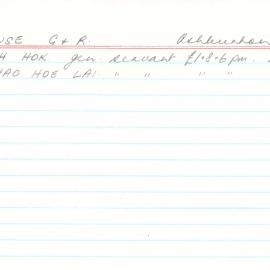 USE G & R. Ashburton
H HOK gen. servant £1·8·6 pm.
HAO HOE LAI " " "